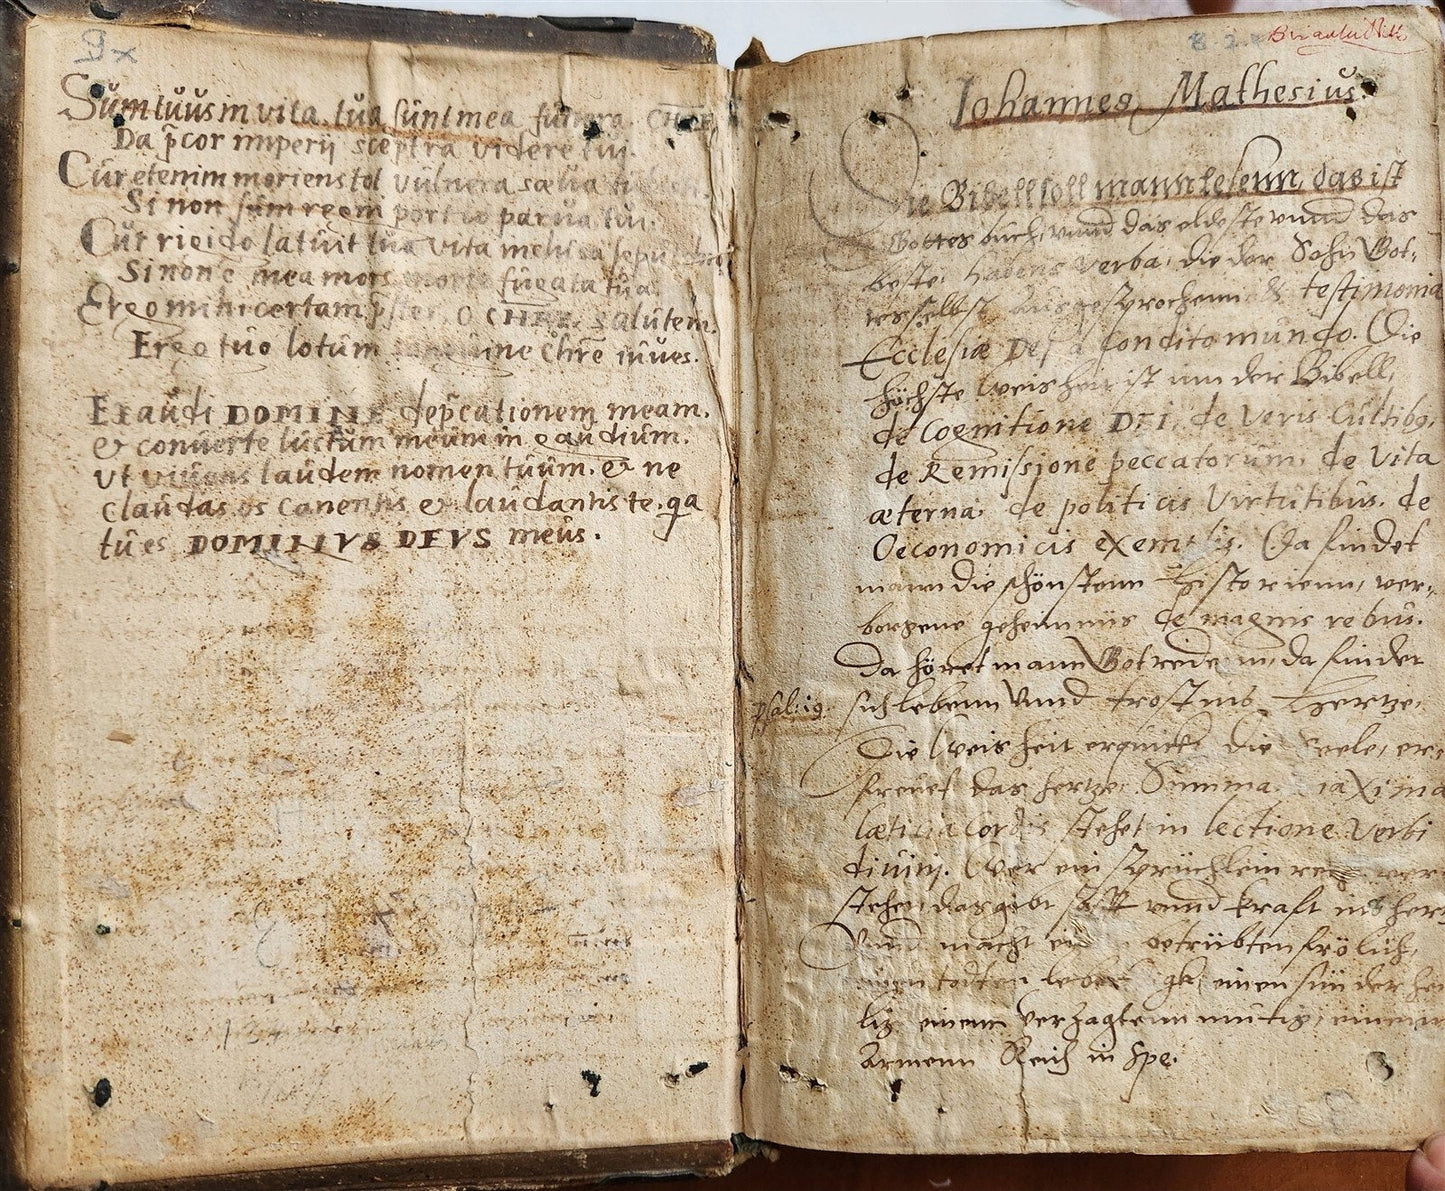 Sum tuus in vita, tua sunt mea funera, CHRE
Da p̃cor imperij sceptra videre tui.
Cur etenim moriens tot vulnera sæva
Si non sum regni portio parva tui.
Cur rigido latuit tua vita inclusa sepul
Si non e mea mors morte fugata tua.
Ergo mihi certam p̃ster, o CHRE, salutem.
Ergo tuo lotum sanguine Chr̄e iuves.
Exaudi DOMINE dep̃cationem meam.
& converte luctum meum in gaudium.
vt vivens laudem nomen tuum. & ne
claudas os canentis & laudantis te. qa
tu es DOMINVS DEVS meus.
8.2.
Johannes Mathesius.
Die Bibell soll mann lesenn, das ist
Gottes buch, vnnd das eldeste vnnd das
beste, habens verba, die der Sohn Got-
tes selbst ausgesprochenn & testimonia
Ecclesiæ Dei a condito mundo. Die
höchste weisheit ist inn der Bibell,
de Cognitione DEI, de veris Cultibg,
de Remissione peccatorum, de vita
æterna, de politicis virtutibus, de
Oeconomicis exemplis. Da findet
mann die schönstenn Historienn, ver-
borgene geheimnis de magnis rebus.
Da höret mann Got redenn, da findet
sich lebenn vnnd trost ins Hertze.
Psal: 19.
Die weisheit erquickt die Seele, er-
freuet das hertze. Summa. Maxima
lætitia Cordis stehet in lectione verbi
divinj. Wer ein sprüchlein recht ver
stehet, das gibt safft vnnd krafft ins hertz
Vnnd macht ein betrübten frölich,
einen todten lebendigk, einen sünder hei
lig, einenn verzagtenn mutig, einenn
Armenn Reich in Spe.